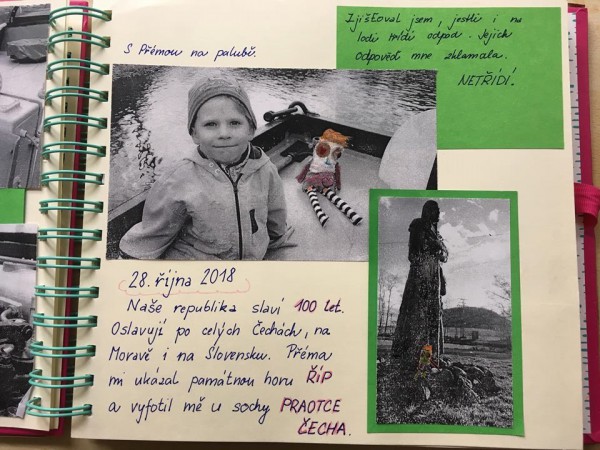 S Přémou na palubě.
Zjišťoval jsem, jestli i na
lodi třídí odpad. Jejich
odpověď mne zklamala.
NETŘÍDÍ!
28. října 2018
Naše republika slaví 100 let.
Oslavují po celých Čechách, na
Moravě i na Slovensku. Přéma
mi ukázal památnou horu ŘÍP
a vyfotil mě u sochy PRAOTCE
ČECHA.